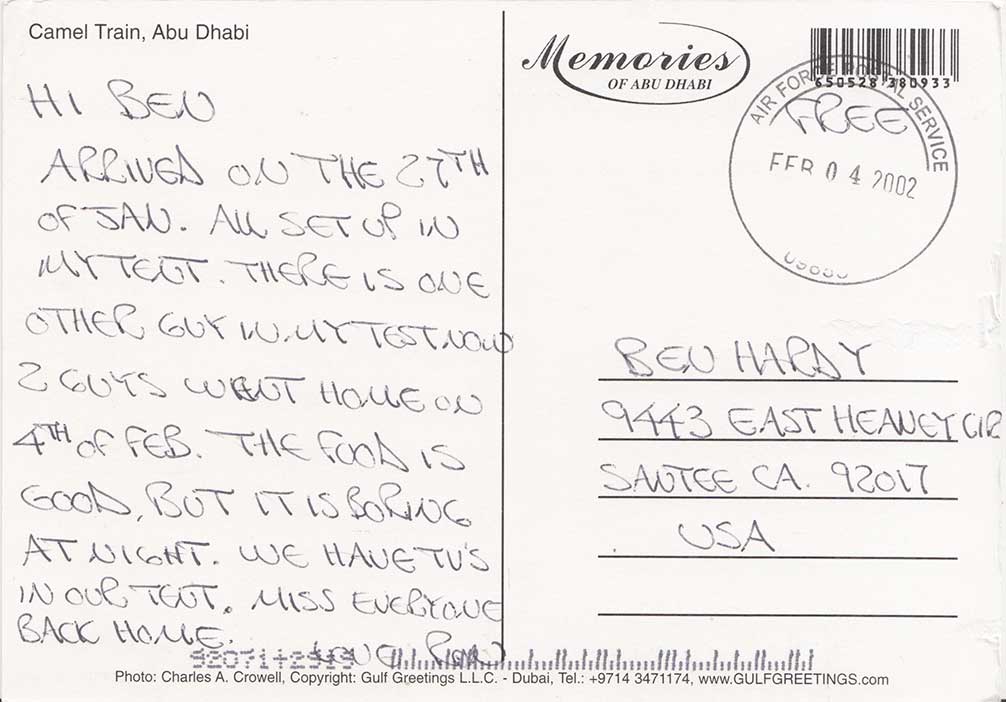 Camel Train, Abu Dhabi
HI BEN
ARRIVED ON THE 27TH
OF JAN. ALL SET UP IN
MY TENT. THERE IS ONE
OTHER GUY IN MY TEST. NOW
2 GUYS WENT HOME ON
4TH OF FEB. THE FOOD IS
GOOD, BUT IT IS BORING
AT NIGHT. WE HAVE TV'S
IN OUR TENT. MISS EVERYONE
BACK HOME.
LOVE RON
Memories
OF ABU DHABI
650528 380933
AIR FORCE POSTAL SERVICE
FREE
FEB 04 2002
BEN HARDY
9443 EAST HEANEY CIR
SANTEE CA. 92017
USA
Photo: Charles A. Crowell, Copyright: Gulf Greetings L.L.C. - Dubai, Tel.: +9714 3471174, www.GULFGREETINGS.com